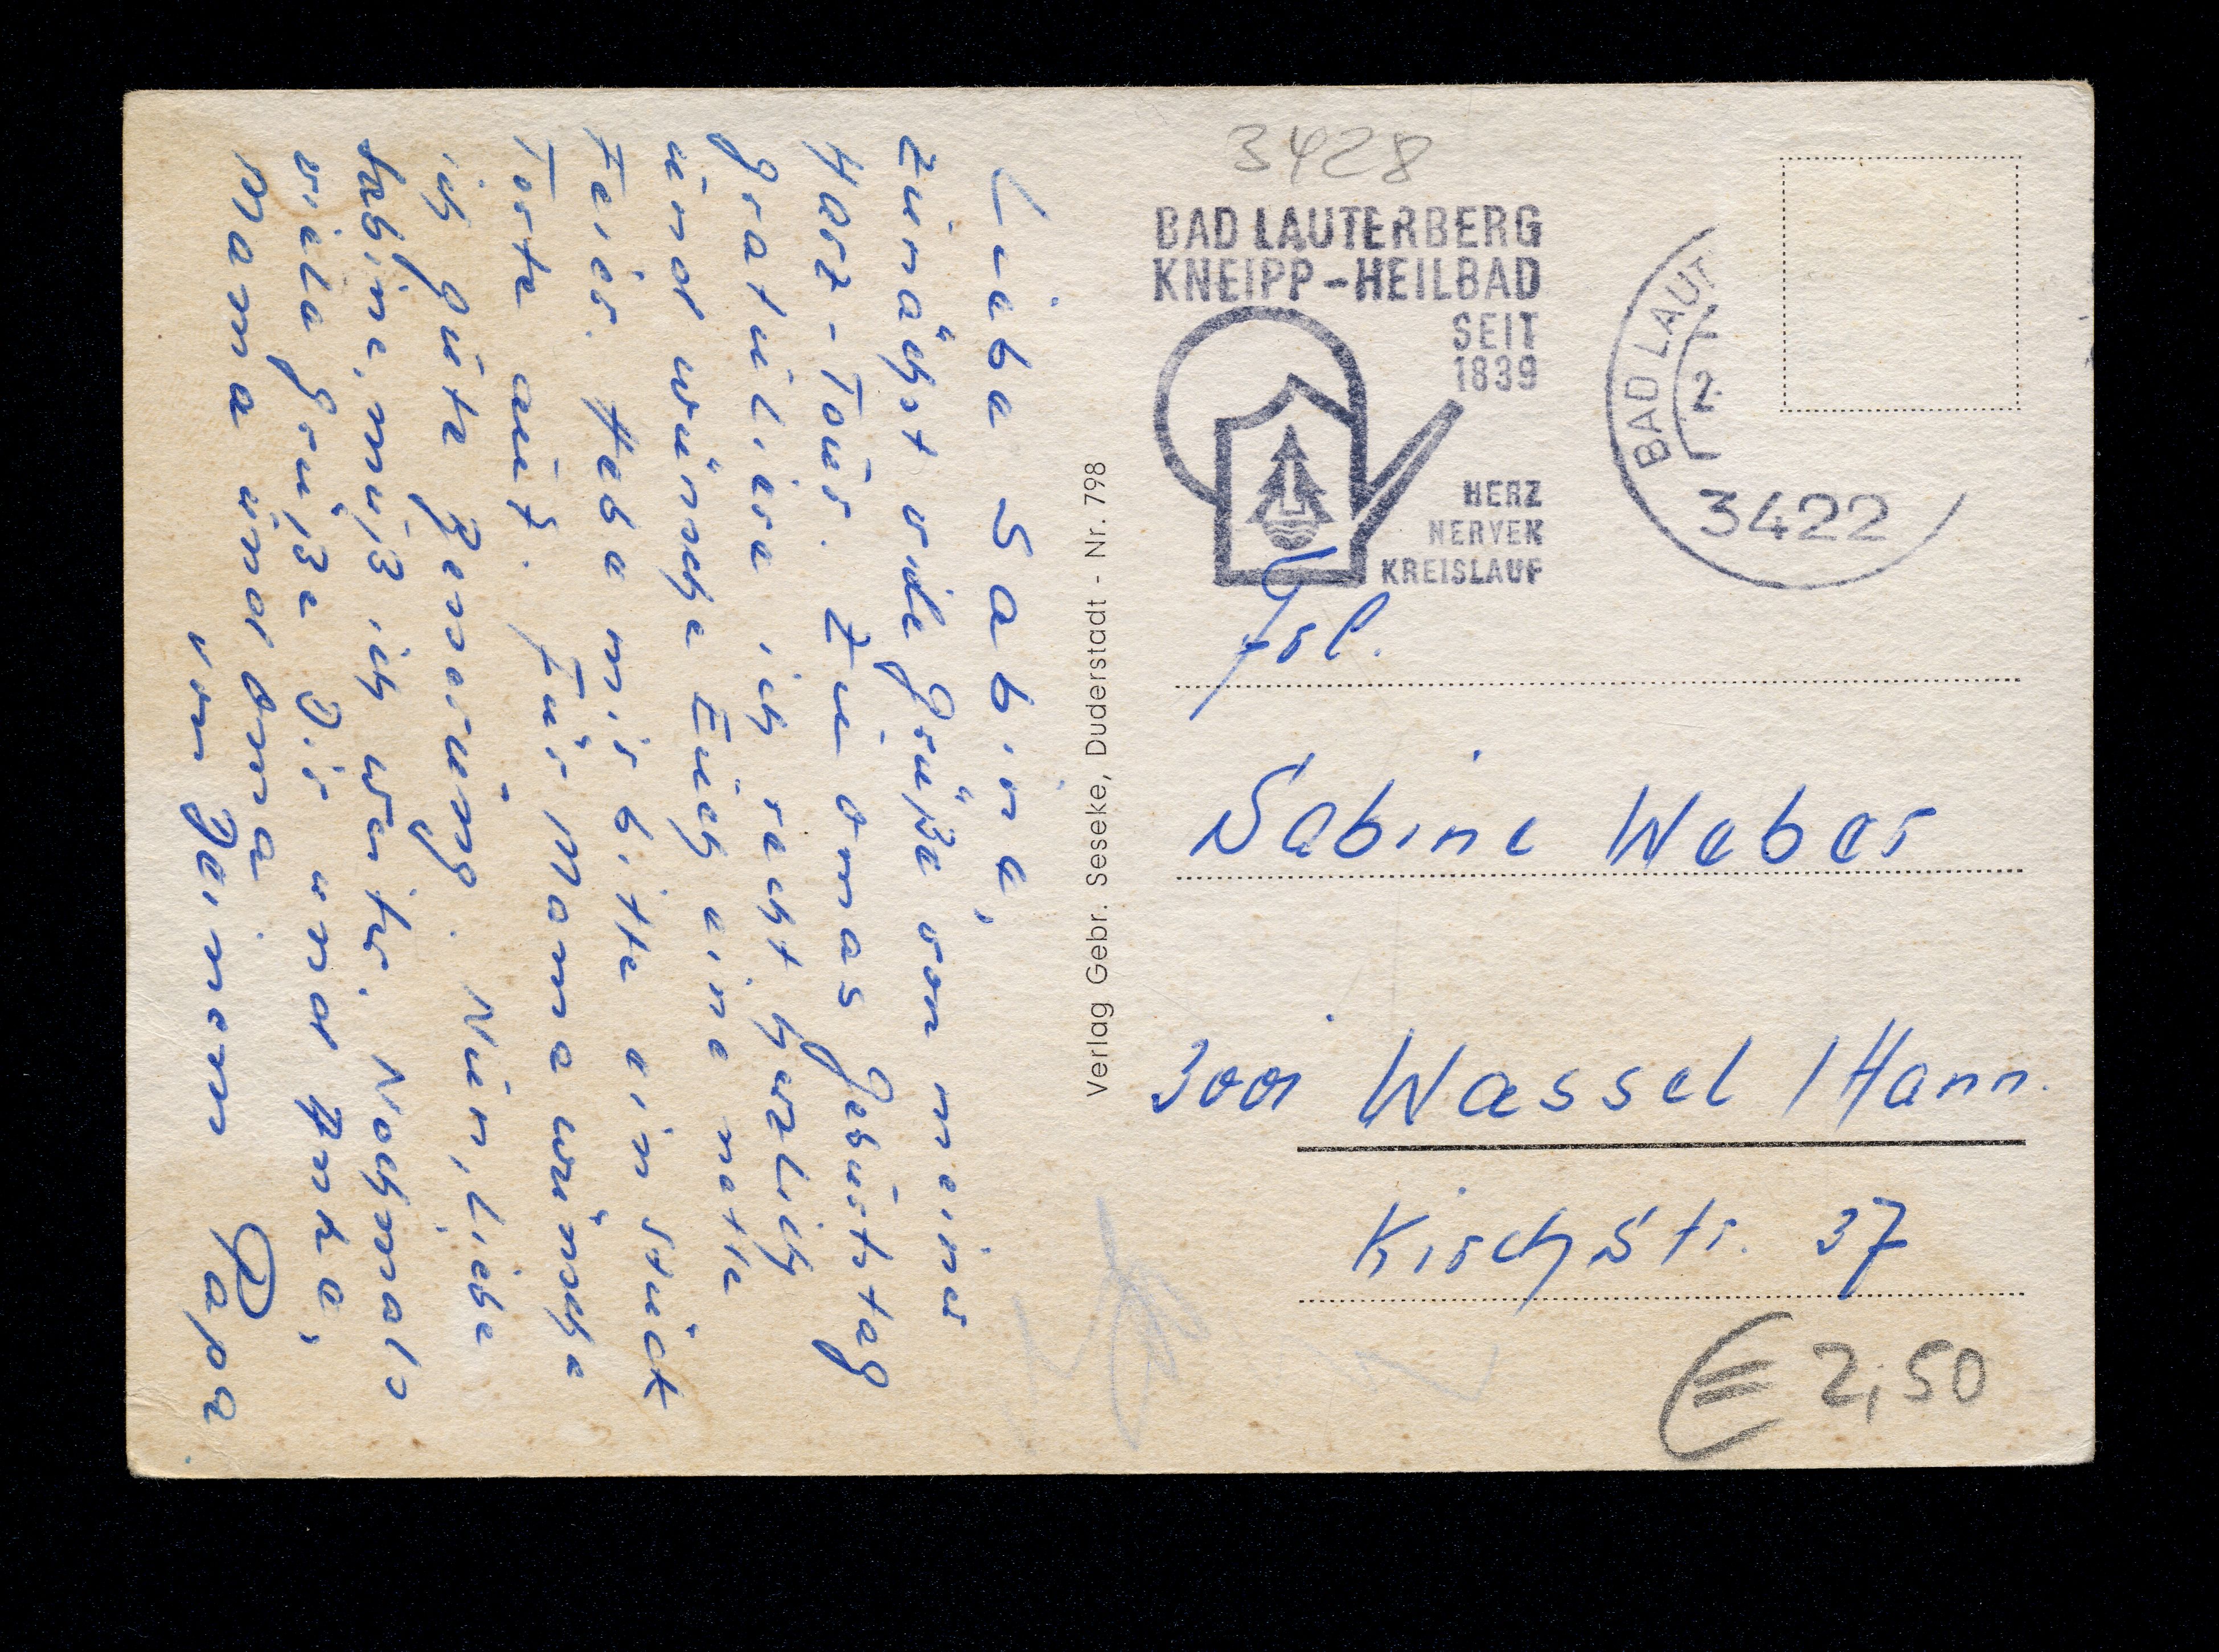 Liebe Sabine,
zunächst viele Grüße von meiner
Harz-Tour. Zu Omas Geburtstag
gratuliere ich recht herzlich
und wünsche Euch eine nette
Feier. Hebe mir bitte ein Stück
Torte auf. Für Mama wünsche
ich gute Besserung. Nun, liebe
Sabine, muß ich weiter. Nochmals
viele Grüße Dir und Anke,
Mama und Oma
von Deinem Papa
Verlag Gebr. Seseke, Duderstadt - Nr. 798
3428
BAD LAUTERBERG
KNEIPP-HEILBAD
SEIT
1839
HERZ
NERVEN
KREISLAUF
BAD LAUT
2.
3422
Frl.
Sabine Weber
3001 Wassel / Hann.
Kirchstr. 37
€ 2,50